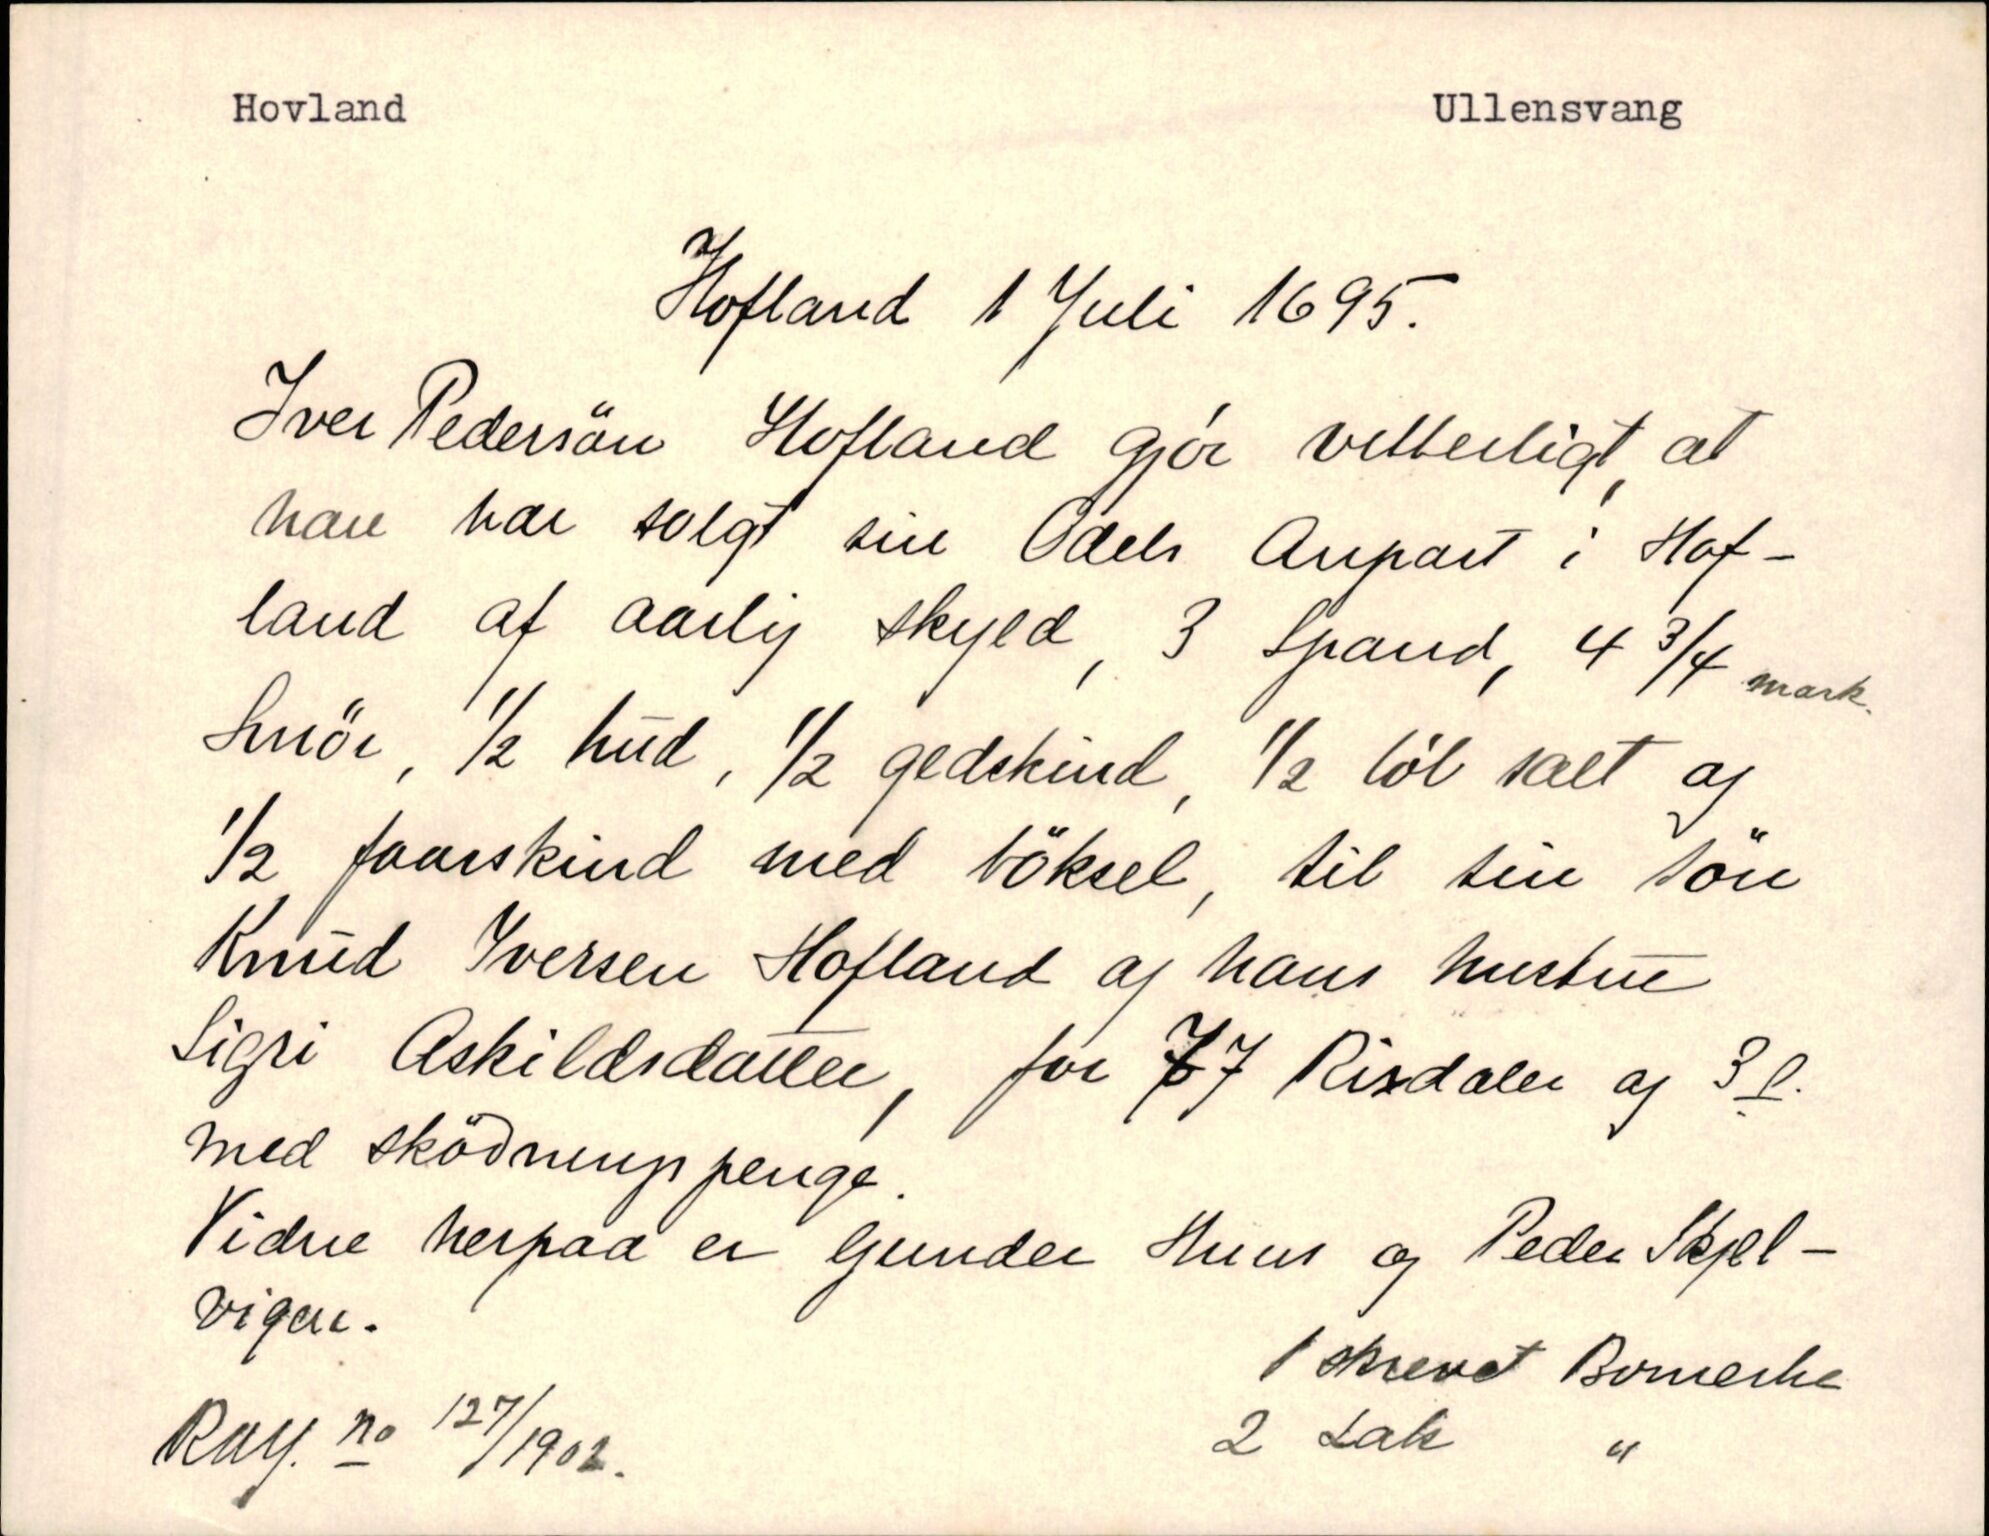 Hovland Ullensvang
Hofland 1 Juli 1695.
Iver Pedersön Hofland gjör vitterligt, at
han har solgt sin Odels Anpart i Hof-
land af aarlig skyld, 3 Spand, 4 3/4 mark.
Smör, 1/2 hud, 1/2 gedskind, 1/2 löb salt og
1/2 faarskind med böksel, til sin sön
Knud Iversen Hofland og hans hustrue
Sigri Askildsdatter, for 77 Rixdaler og 3 ℔.
med sködningspenge.
Vidne herpaa er Gunder Huus og Peder Skjel-
vigen.
1 skrevet Bomerke
2 Lak "
Ray. no 127/1902.